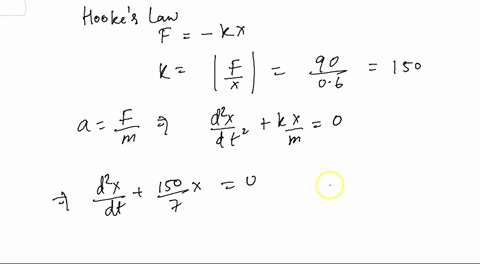 Hooke's Law
F = -kx
k = |F/x| = 90/0.6 = 150
a = F/m ⇒ d²x/dt² + k x/m = 0
⇒ d²x/dt + 150/7 x = 0